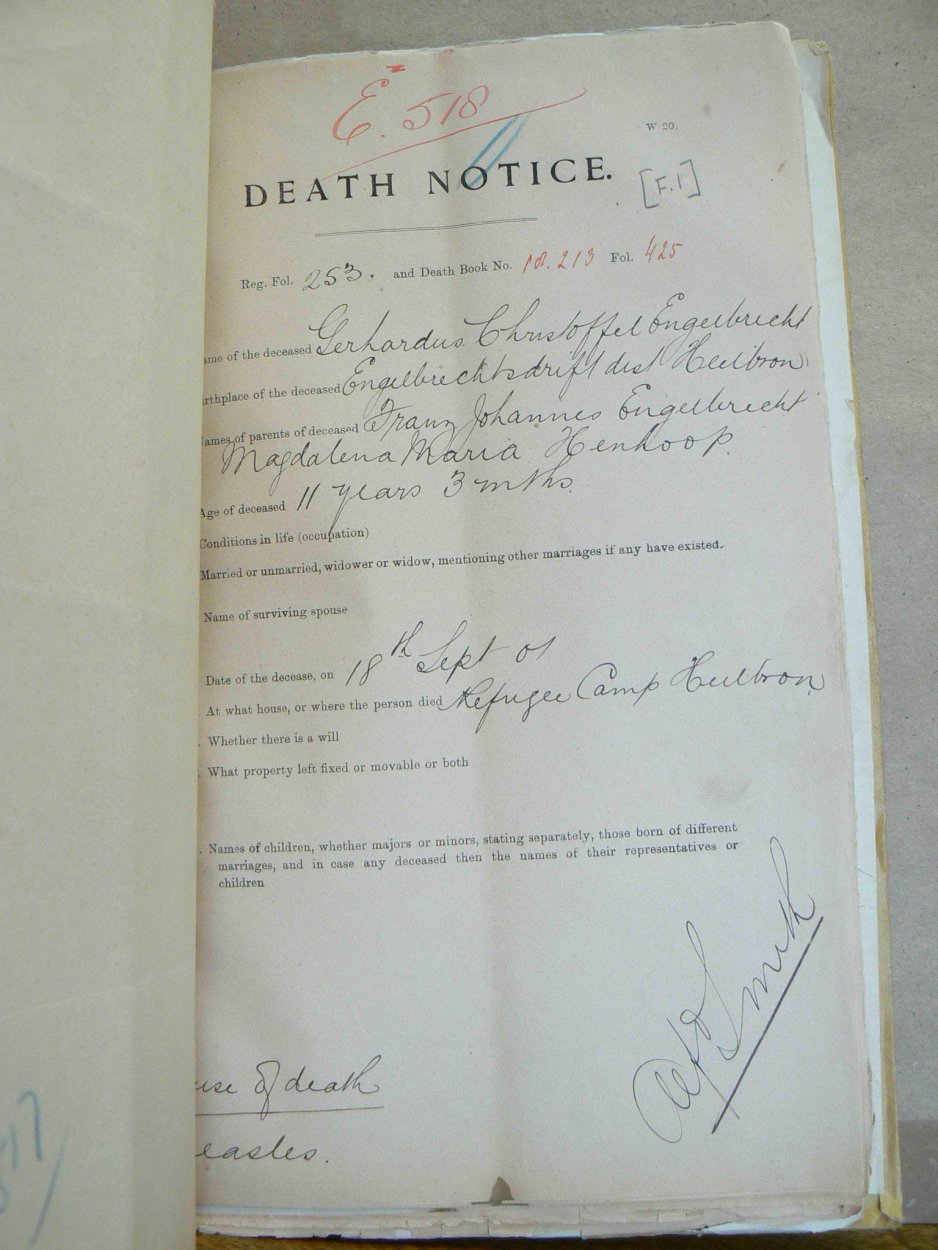 E. 518
W 20.
DEATH NOTICE.
[F.1]
Reg. Fol. 253. and Death Book No. 18.213 Fol. 425
ame of the deceased Gerhardus Christoffel Engelbrecht
rthplace of the deceased Engelbrechtsdrift dist Heilbron
ames of parents of deceased Franz Johannes Engelbrecht
Magdalena Maria Henkoop.
Age of deceased 11 years 3 mths.
Conditions in life (occupation)
Married or unmarried, widower or widow, mentioning other marriages if any have existed.
Name of surviving spouse
Date of the decease, on 18th Sept 01
At what house, or where the person died Refugee Camp Heilbron
. Whether there is a will
. What property left fixed or movable or both
. Names of children, whether majors or minors, stating separately, those born of different
marriages, and in case any deceased then the names of their representatives or
children
Smith
use of death
easles.